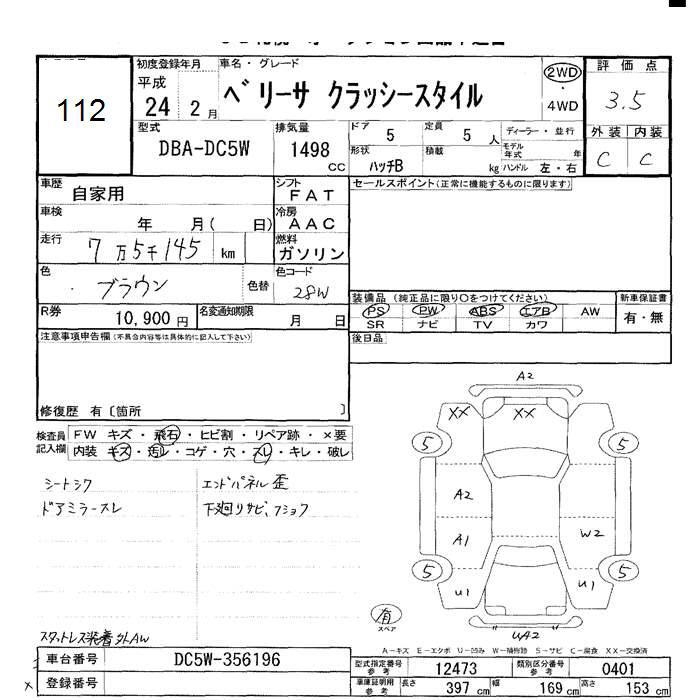 112
初度登録年月 車名・グレード 2WD 評価点
平成 ベリーサ クラッシースタイル ・ 3.5
24 2月 4WD
型式 排気量 ドア 5 定員 5人 ディーラー・並行 外装 内装
DBA-DC5W 1498 CC 形状 ハッチB 積載 kg モデル年式 年 C C
ハンドル 左・右
車歴 自家用 シフト FAT セールスポイント(正常に機能するものに限ります)
車検 年 月( 日) 冷房 AAC
走行 7万5千145 km 燃料 ガソリン
色 ブラウン 色替 色コード 28W
R券 10,900円 名変通知期限 月 日
装備品 (純正品に限り○をつけてください) 新車保証書
PS PW ABS エアB AW 有・無
SR ナビ TV カワ
注意事項申告欄(不具合内容等は具体的に記入して下さい) 後日品
修復歴 有〔箇所 〕
検査員 FW キズ・飛石・ヒビ割・リペア跡・×要
記入欄 内装 キズ・汚レ・コゲ・穴・スレ・キレ・破レ
シートシワ エンドパネル歪
ドアミラースレ 下廻りサビ、
A2
XX XX
5 5
A2
A1 W2
5 5
U1 U1
有
スペア UA2
スタットレス装着 外AW
A-キズ E-エクボ U-凹み W-補修跡 S-サビ C-腐食 XX-交換済
車台番号 DC5W-356196 型式指定番号 参考 12473 類別区分番号 参考 0401
× 登録番号 車庫証明用 参考 長さ 397 cm 幅 169 cm 高さ 153 cm